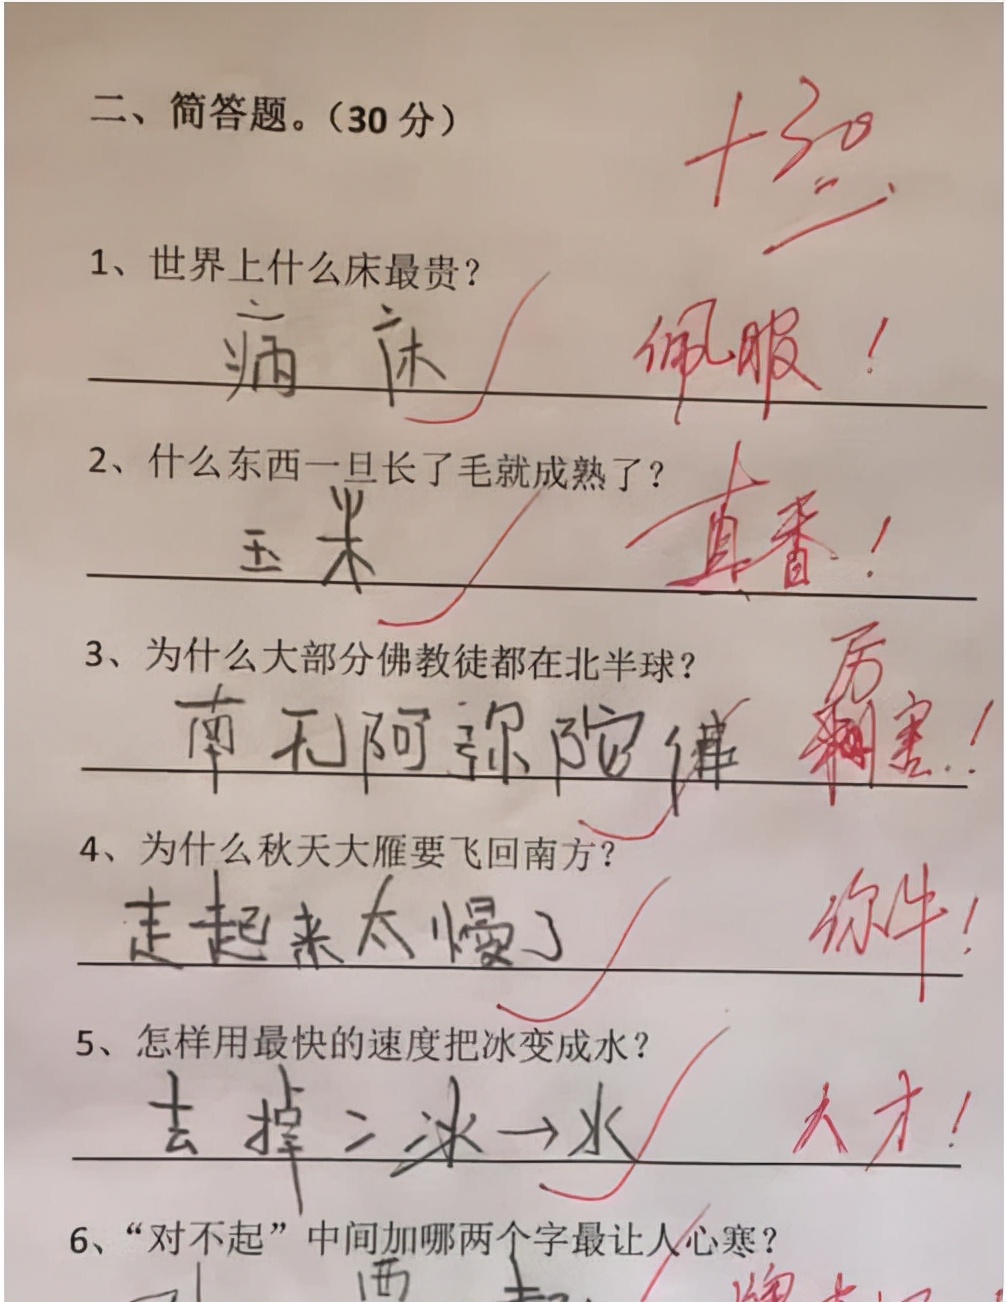 二、简答题。（30 分）
+30
1、世界上什么床最贵？
病床
佩服！
2、什么东西一旦长了毛就成熟了？
玉米
真香！
3、为什么大部分佛教徒都在北半球？
南无阿弥陀佛
厉害！
4、为什么秋天大雁要飞回南方？
走起来太慢了
你牛！
5、怎样用最快的速度把冰变成水？
去掉冫冰→水
人才！
6、“对不起”中间加哪两个字最让人心寒？